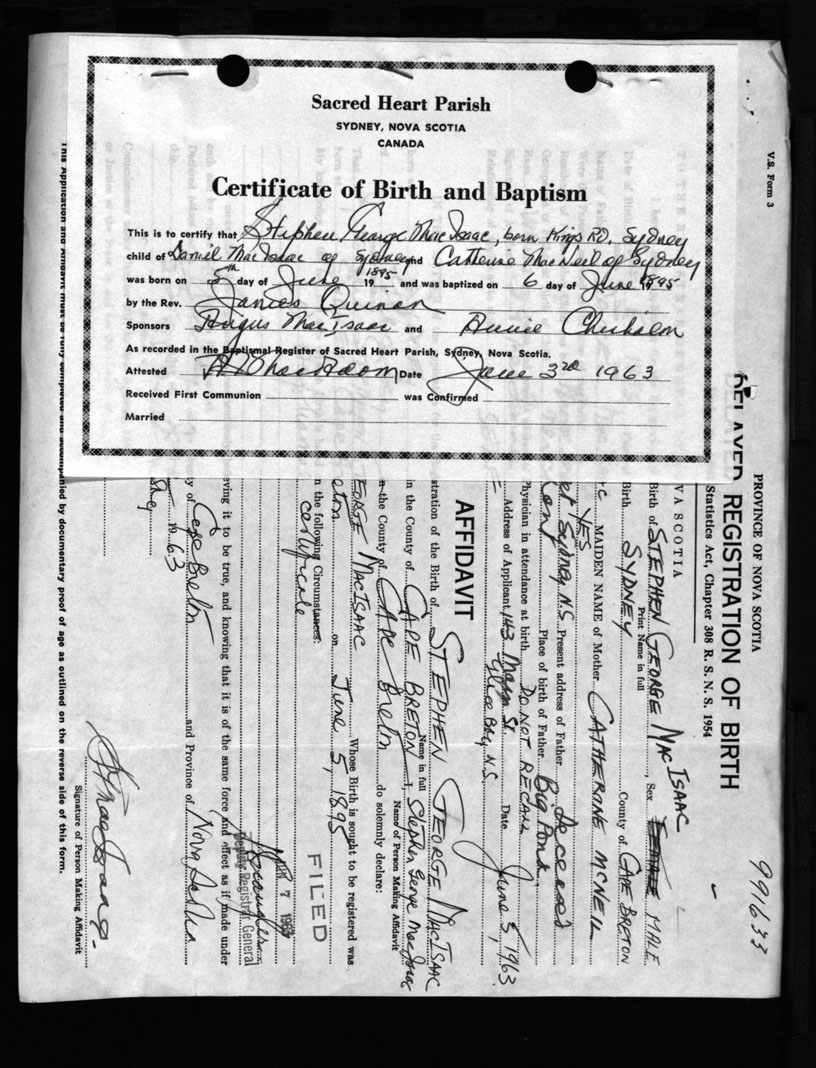 Sacred Heart Parish
SYDNEY, NOVA SCOTIA
CANADA
Certificate of Birth and Baptism
This is to certify that Stephen George MacIsaac, born Kings Rd, Sydney
child of Daniel MacIsaac of Sydney and Catherine MacNeil of Sydney
was born on 5th day of June 19 1895 and was baptized on 6 day of June 19 1895
by the Rev. James Quinan
Sponsors Angus MacIsaac and Annie Chisholm
As recorded in the Baptismal Register of Sacred Heart Parish, Sydney, Nova Scotia.
Attested Date June 3rd 1963
Received First Communion was Confirmed
Married
V.S. Form 3
991633
PROVINCE OF NOVA SCOTIA
DELAYED REGISTRATION OF BIRTH
Statistics Act, Chapter 308 R. S. N. S. 1954
VA SCOTIA
Birth of STEPHEN GEORGE MACISAAC, Sex MALE
Print Name in full
Birth SYDNEY County of CAPE BRETON
MAIDEN NAME of Mother CATHERINE MCNEIL
YES
Sydney, N.S. Present address of Father deceased
Place of birth of Father Big Pond
Physician in attendance at birth DO NOT RECALL
Address of Applicant 143 Main St. Date June 5, 1963
Glace Bay, N.S.
AFFIDAVIT
stration of the Birth of STEPHEN GEORGE MACISAAC
Name in full
n the County of CAPE BRETON I, Stephen George MacIsaac
Name of Person Making Affidavit
n the County of CAPE Breton do solemnly declare:
EORGE MACISAAC Whose Birth is sought to be registered was
eton on June 5, 1895
n the following Circumstances:
certificate
FILED
7 1963
Deputy Registrar General
eving it to be true, and knowing that it is of the same force and effect as if made under
y of Cape Breton and Province of Nova Scotia
1963
Signature of Person Making Affidavit
This Application and Affidavit must be fully completed and accompanied by documentary proof of age as outlined on the reverse side of this form.